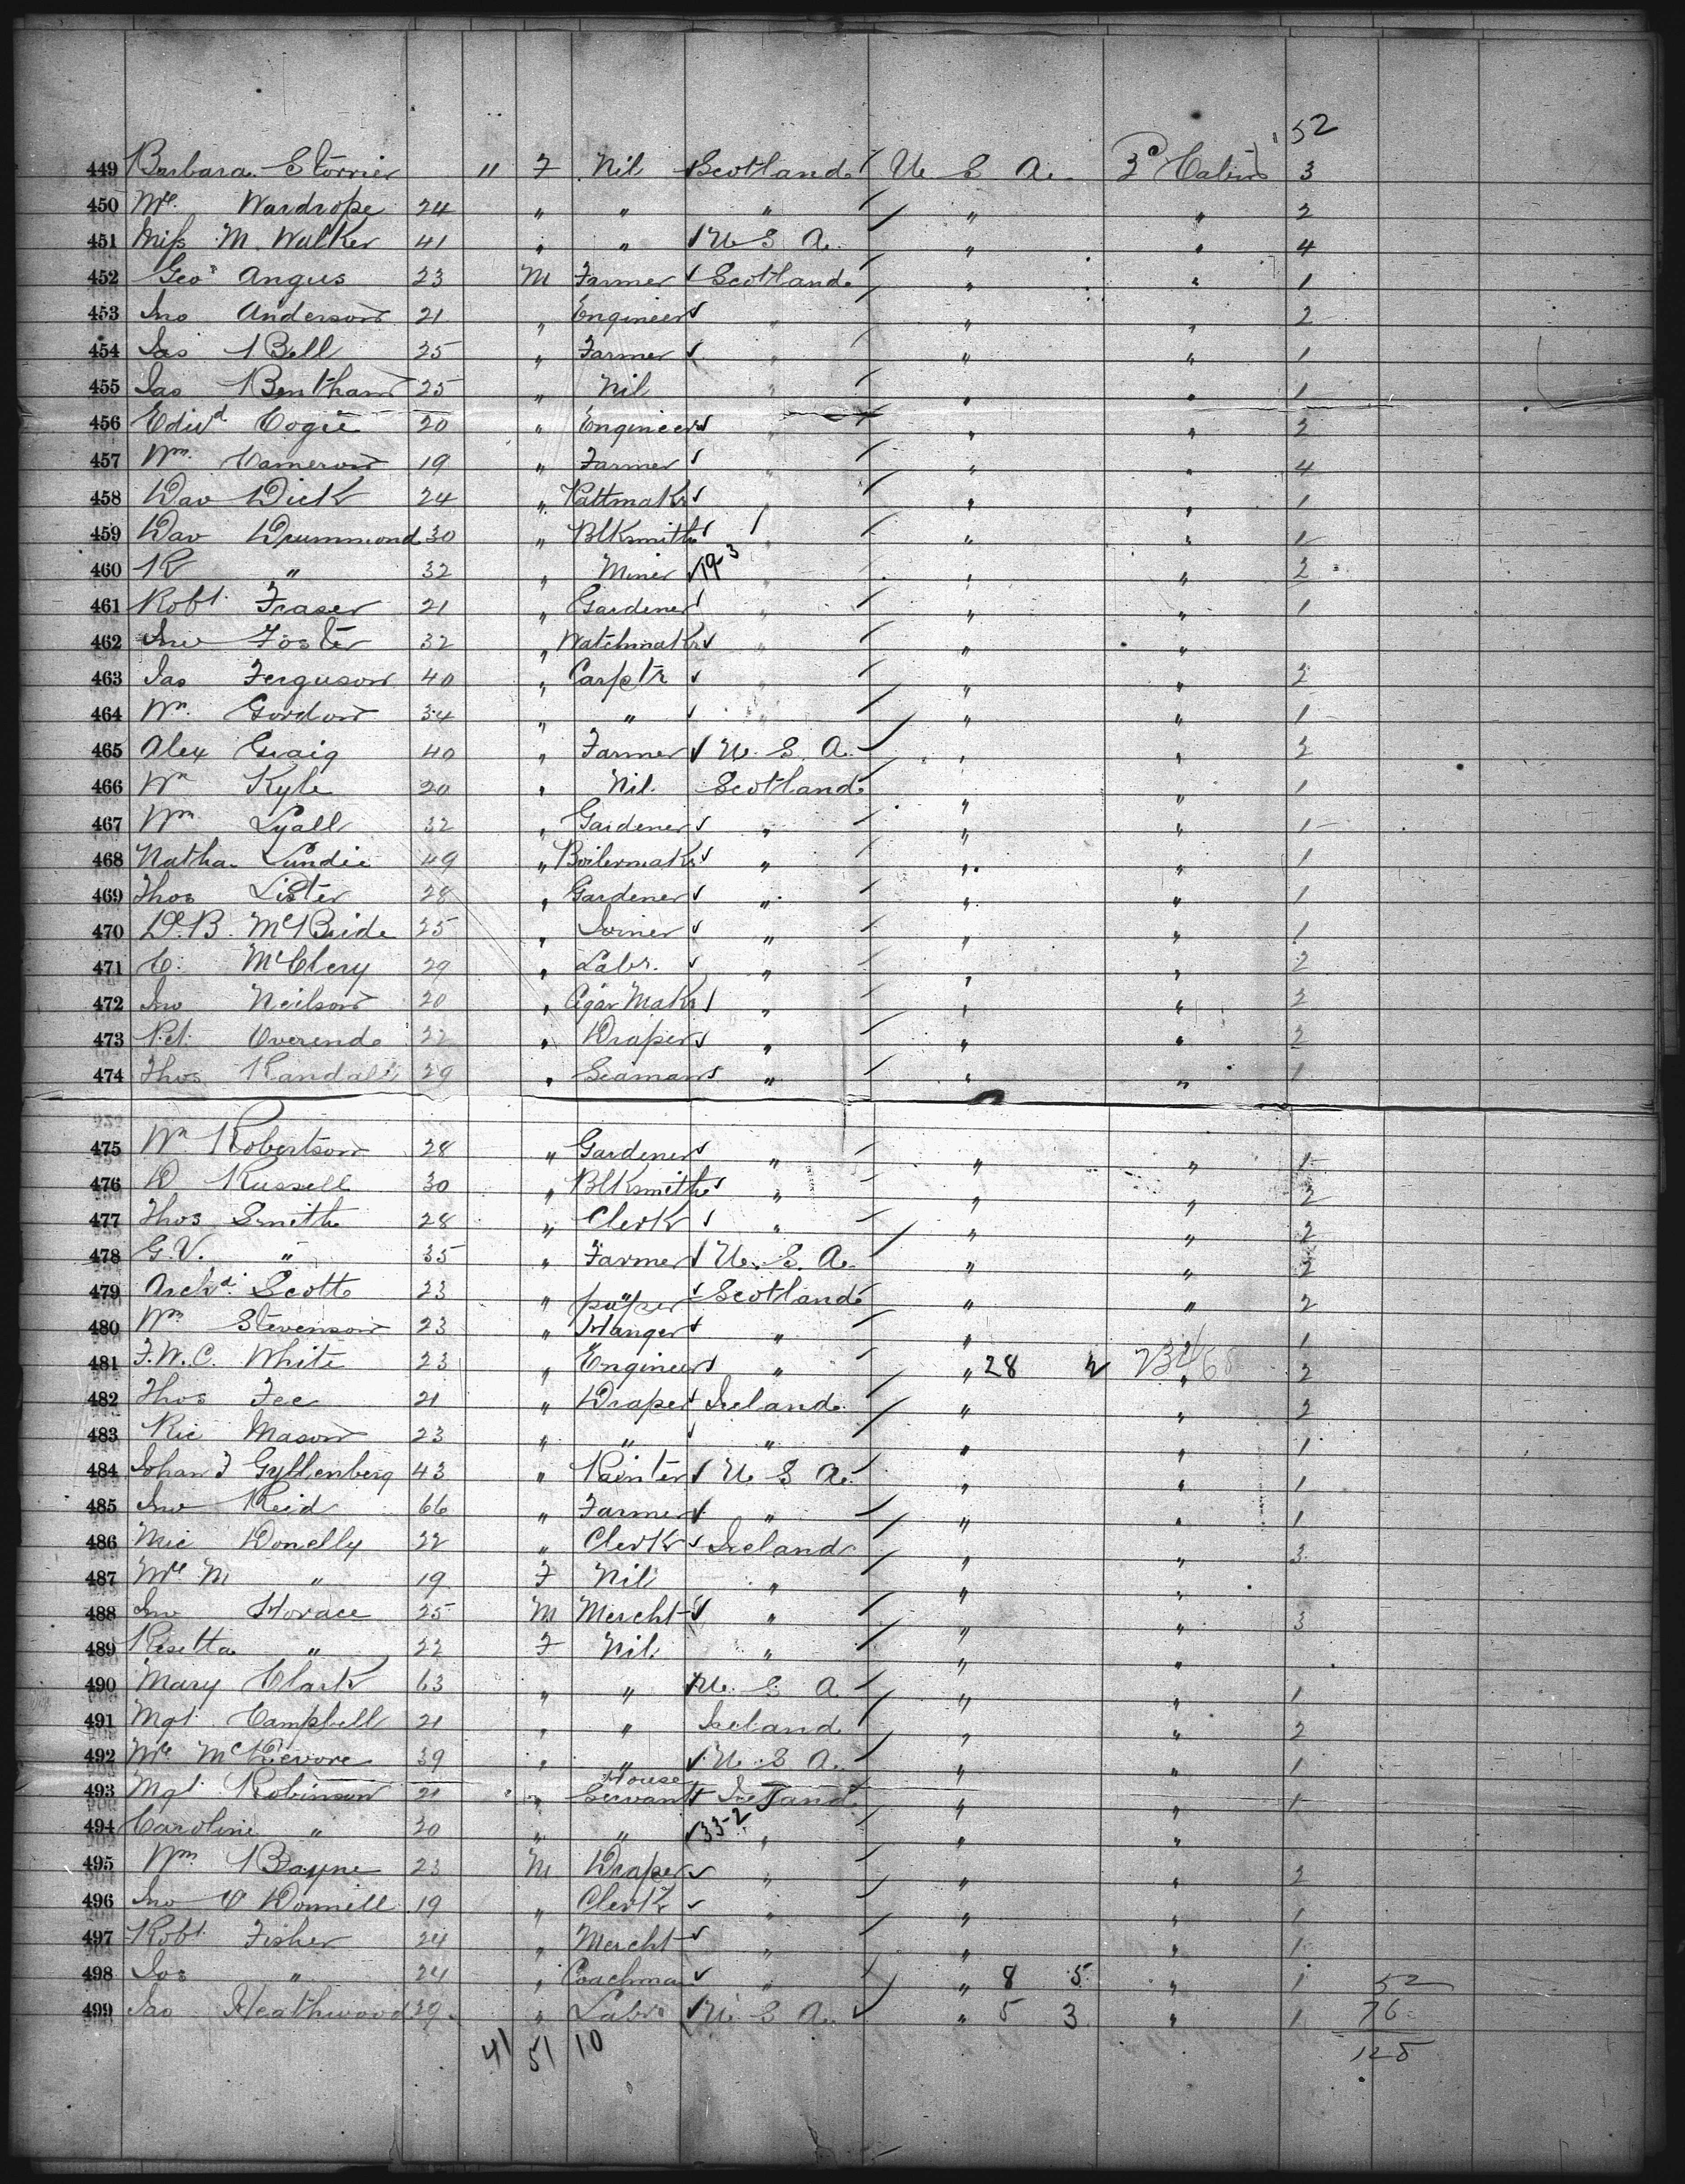 52
449 Barbara Storrier " F Nil Scotland U S A. 2d Cabin 3
450 Mrs. Wardrope 24 " " " " " 2
451 Miss M. Walker 41 " " U S A. " " 4
452 Geo Angus 23 M Farmer Scotland " " 1
453 Jno Anderson 21 " Engineer " " " 2
454 Jas Bell 25 " Farmer " " " 1
455 Jas Bentham 25 " Nil " " " 1
456 Edwd Cogie 20 " Engineer " " " 2
457 Wm. Cameron 19 " Farmer " " " 4
458 Dav Dick 24 " Hattmakr " " " 1
459 Dav Drummond 30 " Blksmith " " " 1
460 R " 32 " Miner 19-3 " " " 2
461 Robt. Fraser 21 " Gardener " " " 1
462 Jno Foster 32 " Watchmakr " " "
463 Jas Ferguson 40 " Carptr " " " 2
464 Wm. Gordon 34 " " " " " 1
465 Alex Craig 40 " Farmer U. S. A. " " 2
466 Wm Kyle 20 " Nil. Scotland " " 1
467 Wm Lyall 32 " Gardener " " " 1
468 Natha. Lundie 49 " Boilermakr " " " 1
469 Thos Lister 28 " Gardener " " " 1
470 D. B. McBride 25 " Joiner " " " 1
471 C. McClery 29 " Labr. " " " 2
472 Jno Neilson 20 " Cigar Makr " " " 2
473 Pet. Overend 22 " Draper " " " 2
474 Thos Randall 29 " Seaman " " " 1
475 Wm Robertson 28 " Gardener " " " 1
476 D Russell 30 " Blksmith " " " 2
477 Thos Smith 28 " Clerk " " " 2
478 G. V. " 35 " Farmer U. S. A. " " 2
479 Archd. Scott 23 " " Scotland " " 2
480 Wm Stevenson 23 " paper Hanger " " " 1
481 F. W. C. White 23 " Engineer " " 28 " 2
482 Thos Fee 21 " Draper Ireland " " 2
483 Ric Mason 23 " " " " " 1
484 Johan F Gyllenberg 43 " Painter U S A. " " 1
485 Jno Reid 66 " Farmer " " " 1
486 Mic Donelly 22 " Clerk Ireland " " 3
487 Mrs M " 19 F Nil " " "
488 Jno Horace 25 M Mercht " " " 3
489 Rosetta " 22 F Nil " " "
490 Mary Clark 63 " " U. S A " " 1
491 Mgt. Campbell 21 " " Ireland " " 2
492 Mrs 39 " " U. S A. " " 1
493 Mgt. Robinson 21 " House Servant Ireland " " 1
494 Caroline " 20 " " 33-2 " " "
495 Wm Bayne 23 M Draper " " " 2
496 Jno O Donnell 19 " Clerk " " " 1
497 Robt. Fisher 24 " Mercht " " " 1
498 Jos " 24 " Coachman " " 8 5 " 1 52
499 Jas Heathwood 29 " Labr U. S A. " 5 3 " 1 76
41 51 10 128